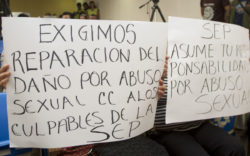 EXIGIMOS
REPARACION DEL
DAÑO POR ABUSO
SEXUAL CC A LOS
CULPABLES DE LA
SEP
SEP
ASUME TU RES
PONSABILIDAD
POR ABUSO
SEXUAL